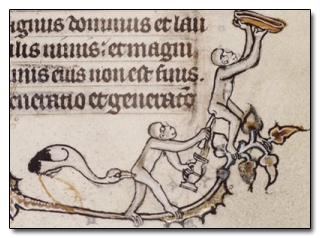 ignus dominus et lau
ilis nimis: et magni
inis eius non est finis.
eneratio et generatō